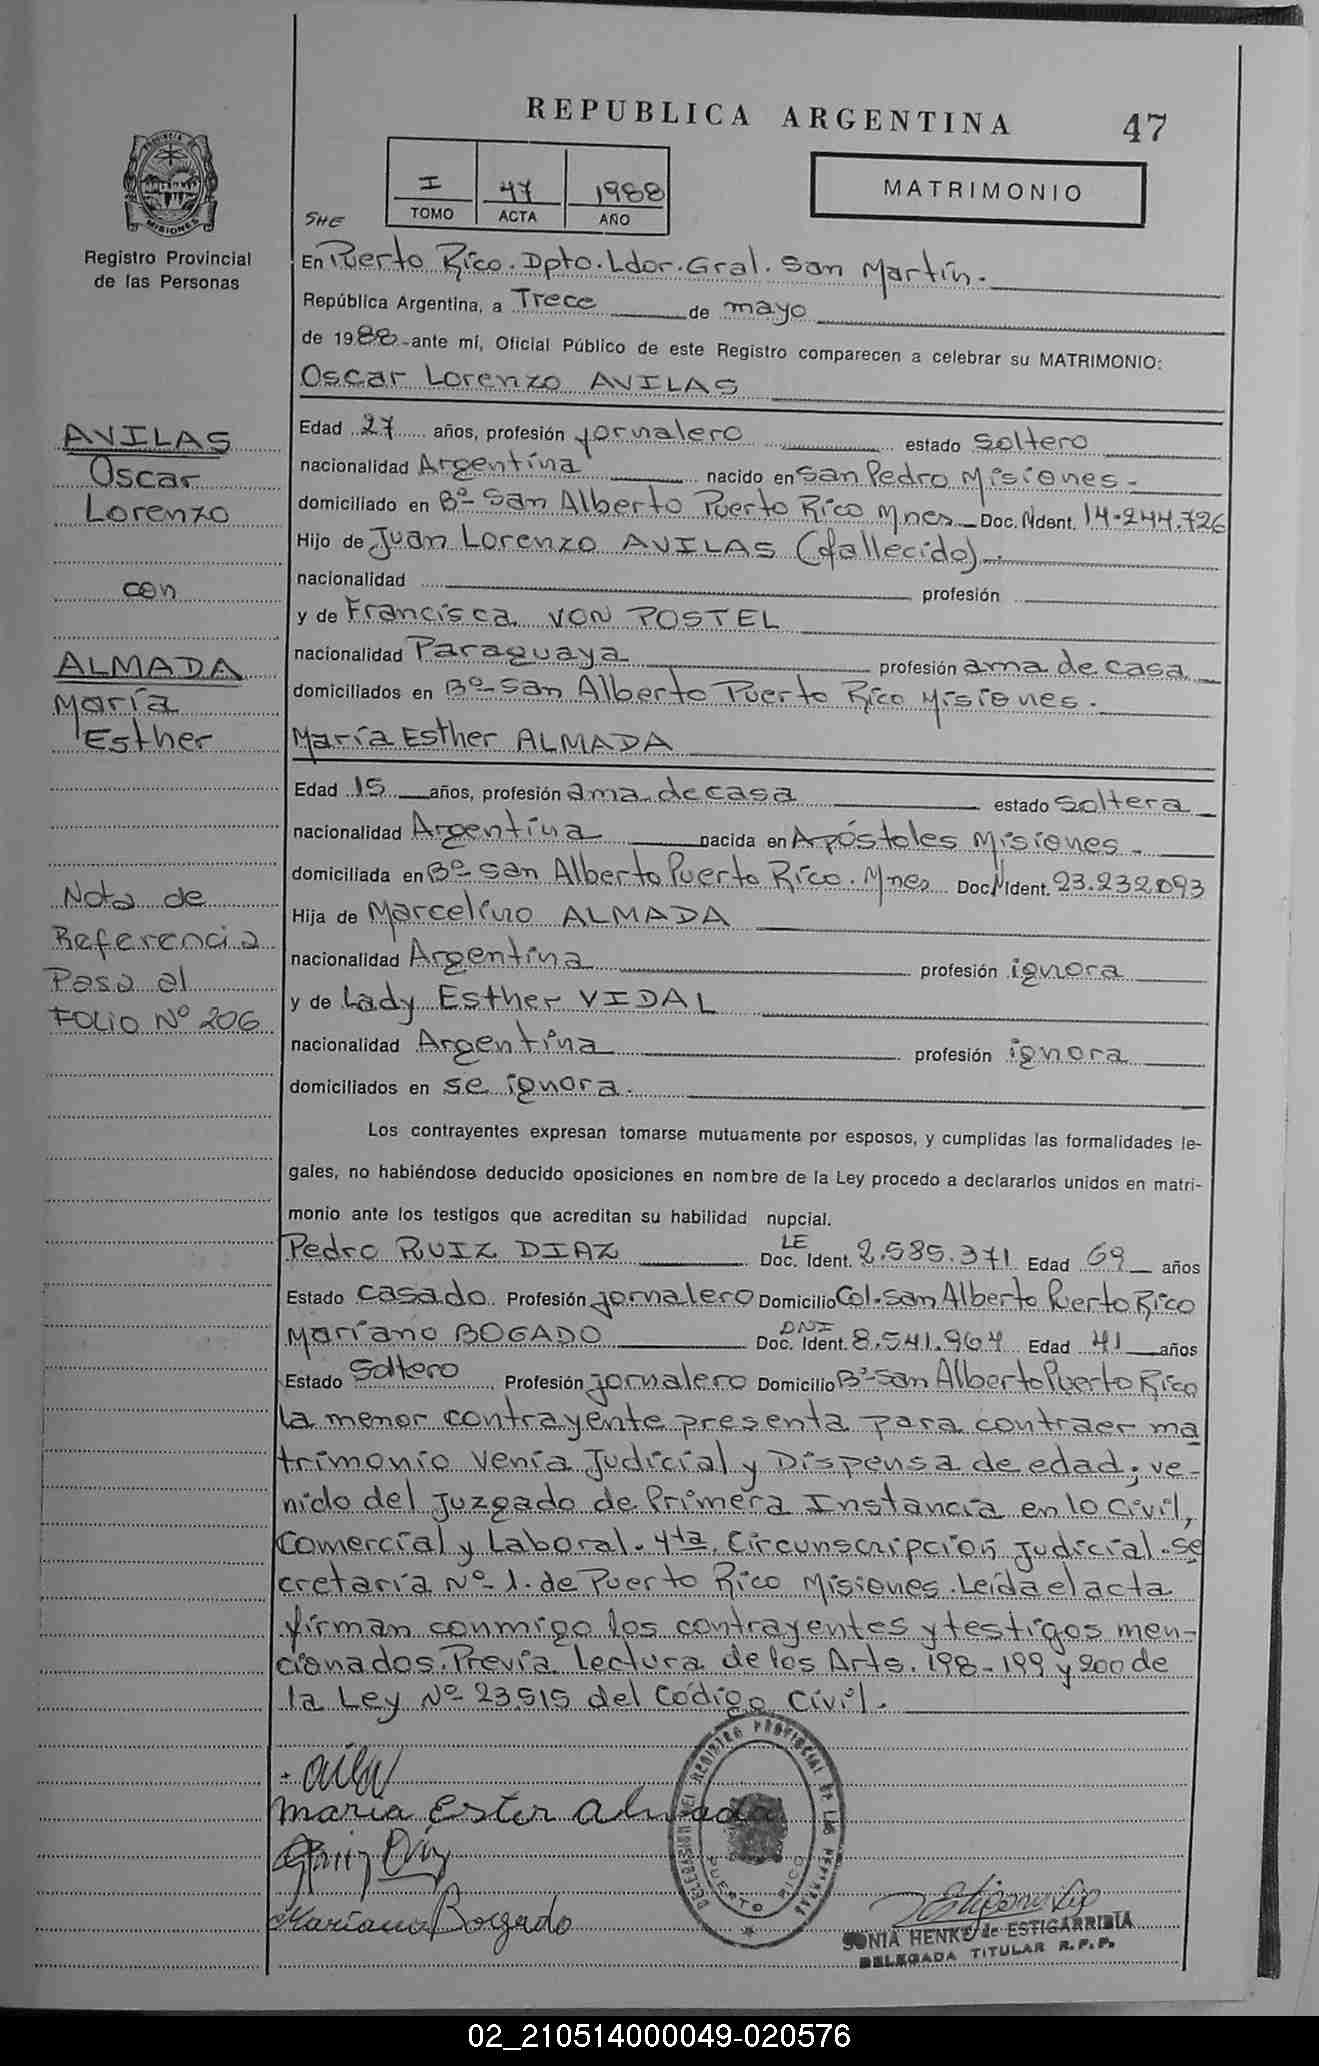 REPUBLICA ARGENTINA 47
PROVINCIA DE MISIONES
Registro Provincial
de las Personas
I 47 1988
TOMO ACTA AÑO
MATRIMONIO
SHE
En Puerto Rico. Dpto. Ldor. Gral. San Martín.
República Argentina, a Trece de mayo
de 1988 ante mí, Oficial Público de este Registro comparecen a celebrar su MATRIMONIO:
Oscar Lorenzo AVILAS
AVILAS
Oscar
Lorenzo
con
ALMADA
María
Esther
Nota de
Referencia
Pasa al
FOLIO Nº 206
Edad 27 años, profesión jornalero estado soltero
nacionalidad Argentina nacido en San Pedro Misiones.
domiciliado en Bº San Alberto Puerto Rico Mnes Doc. Nident. 14.244.726
Hijo de Juan Lorenzo AVILAS (fallecido).
nacionalidad profesión
y de Francisca VON POSTEL
nacionalidad Paraguaya profesión ama de casa
domiciliados en Bº San Alberto Puerto Rico Misiones.
María Esther ALMADA
Edad 15 años, profesión ama de casa estado soltera
nacionalidad Argentina nacida en Apóstoles Misiones.
domiciliada en Bº San Alberto Puerto Rico. Mnes Doc. NIdent. 23.232.093
Hija de Marcelino ALMADA
nacionalidad Argentina profesión ignora
y de Lady Esther VIDAL
nacionalidad Argentina profesión ignora
domiciliados en se ignora.
Los contrayentes expresan tomarse mutuamente por esposos, y cumplidas las formalidades le-
gales, no habiéndose deducido oposiciones en nombre de la Ley procedo a declararlos unidos en matri-
monio ante los testigos que acreditan su habilidad nupcial.
Pedro RUIZ DIAZ LE Doc. Ident. 2.585.371 Edad 69 años
Estado casado Profesión jornalero Domicilio Col. San Alberto Puerto Rico
Mariano BOGADO DNI Doc. Ident. 8.541.964 Edad 41 años
Estado Soltero Profesión jornalero Domicilio Bº San Alberto Puerto Rico
la menor contrayente presenta para contraer ma
trimonio Venia Judicial y Dispensa de edad; ve-
nido del Juzgado de Primera Instancia en lo Civil,
Comercial y Laboral. 4ta. Circunscripción Judicial. Se
cretaría Nº 1. de Puerto Rico Misiones. Leída el acta
firman conmigo los contrayentes y testigos men-
cionados. Previa Lectura de los Arts. 198-199 y 200 de
la Ley Nº 23.515 del Código Civil.
Maria Ester Almada
Ruiz Diaz
Mariano Bogado
DELEGACION DEL REGISTRO PROVINCIAL DE LAS PERSONAS
PUERTO RICO
SONIA HENKE de ESTIGARRIBIA
DELEGADA TITULAR R.P.P.
02_210514000049-020576